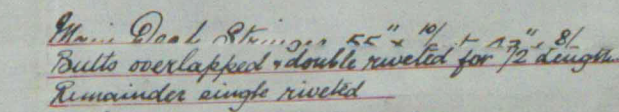 Main Deck Stringer 55" x 10/ to 43" x 8/
Butts overlapped & double riveted for 1/2 Length
Remainder single riveted